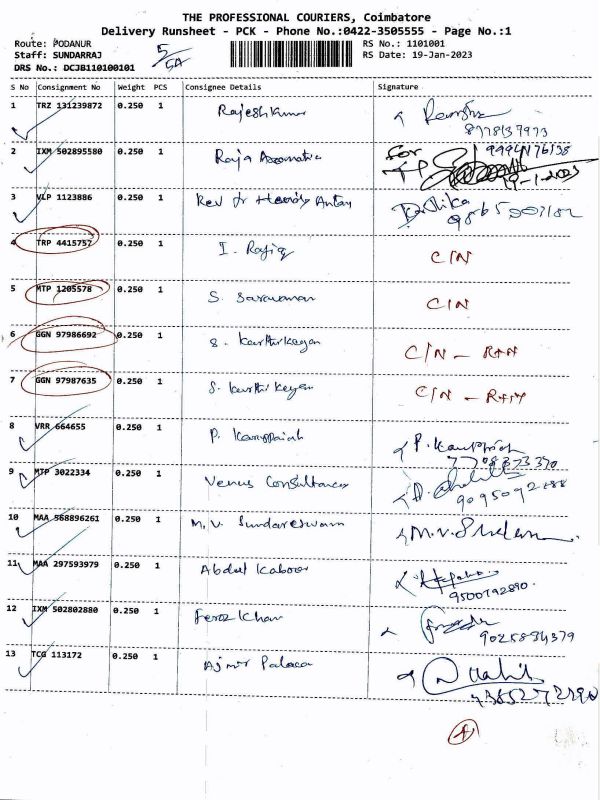 THE PROFESSIONAL COURIERS, Coimbatore
Delivery Runsheet - PCK - Phone No.:0422-3505555 - Page No.:1
Route: PODANUR
Staff: SUNDARRAJ
DRS No.: DCJB110100101
5/5A
RS No.: 1101001
RS Date: 19-Jan-2023
S No Consignment No Weight PCS Consignee Details Signature
1 TRZ 131239872 0.250 1 Rajeshkumar
8778137973
2 IXM 502895580 0.250 1 Raja for
19-1-2023
3 VLP 1123886 0.250 1 Rev Fr Antony Karthika
4 TRP 4415757 0.250 1 I. Rafiq C/N
5 MTP 1205578 0.250 1 S. Saravanan C/N
6 GGN 97986692 0.250 1 S. Karthikeyan C/N - RTN
7 GGN 97987635 0.250 1 S. Karthikeyan C/N - RTN
8 VRR 664655 0.250 1 P. Karuppaiah
7708373370
9 MTP 3022334 0.250 1 Venus Consultancy
10 MAA 568896261 0.250 1 M.V. Sundareswaran
11 MAA 297593979 0.250 1 Abdul Kaboor
9500792890.
12 IXM 502802880 0.250 1 Feroz Khan
9025834379
13 TCG 113172 0.250 1 Ajmir Palace